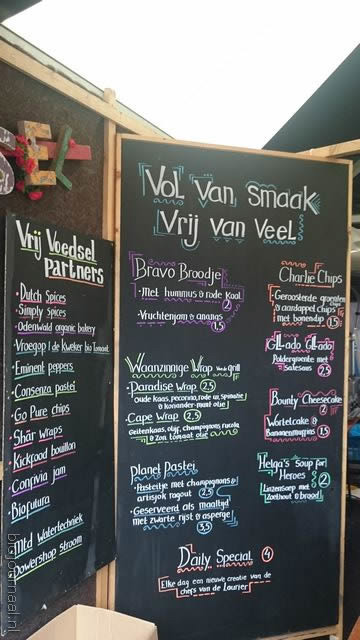 EL
Vrij Voedsel
Partners
· Dutch Spices
· Simply Spices
· Odenwald organic bakery
· Vroegop / de kweker bio tomaat
· Eminent peppers
· Consenza pastei
· Go Pure chips
· Shär wraps
· Kickrood bouillon
· Conjivia jam
· Biofutura
· Mtd Watertechniek
· Powershop stroom
Vol van smaak
Vrij van veel
Bravo Broodje
· Met hummus & rode kool 2
· Vruchtenjam & ananas 1,5
Waanzinnige Wrap van de grill
· Paradise Wrap 2,5
oude kaas, pecorino, rode ui, spinatie
& koriander-munt olie
· Cape Wrap 2,5
Geitenkaas, olijf, champignons, rucola
& zon tomaat olie
Planet Pastei
· Pasteitje met champignons &
artisjok ragout 2,5
· Geserveerd als maaltijd
met zwarte rijst & asperge
3,5
Charlie Chips
· Geroosterde groenten
& aardappel chips
met bonendip 1,5
Poldergroente met
salesaus 2,5
Bounty Cheesecake
2
Wortelcake &
Bananenmuffins 1,5
Helga's Soup for
Heroes 2
Linzensoep met
Zoethout & brood
Daily Special 4
Elke dag een nieuwe creatie van de
chefs van de Laurier